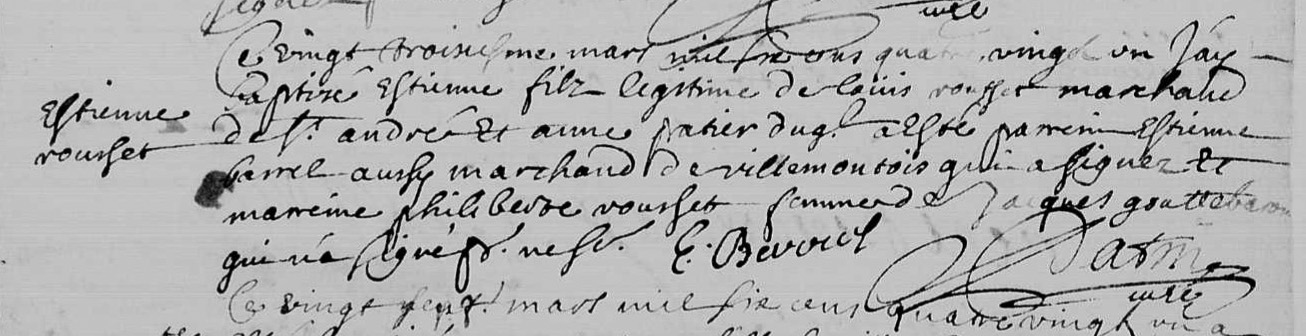 curé
Ce vingt troisiesme mars mil six cens quatre vingt un J'ay
Baptisé Estienne filz legitime de loüis rousset marchand
Estienne
rousset
de St andré Et anne patier dug. a Esté parrein Estienne
barrel aussy marchand de villemontois qui a signez Et
marreine philiberte rousset femme de Jacques gouttebaron
qui n'a signé pr. ne sc.r E. Barrel
curé
Ce vingt mars mil six cens quatre vingt un